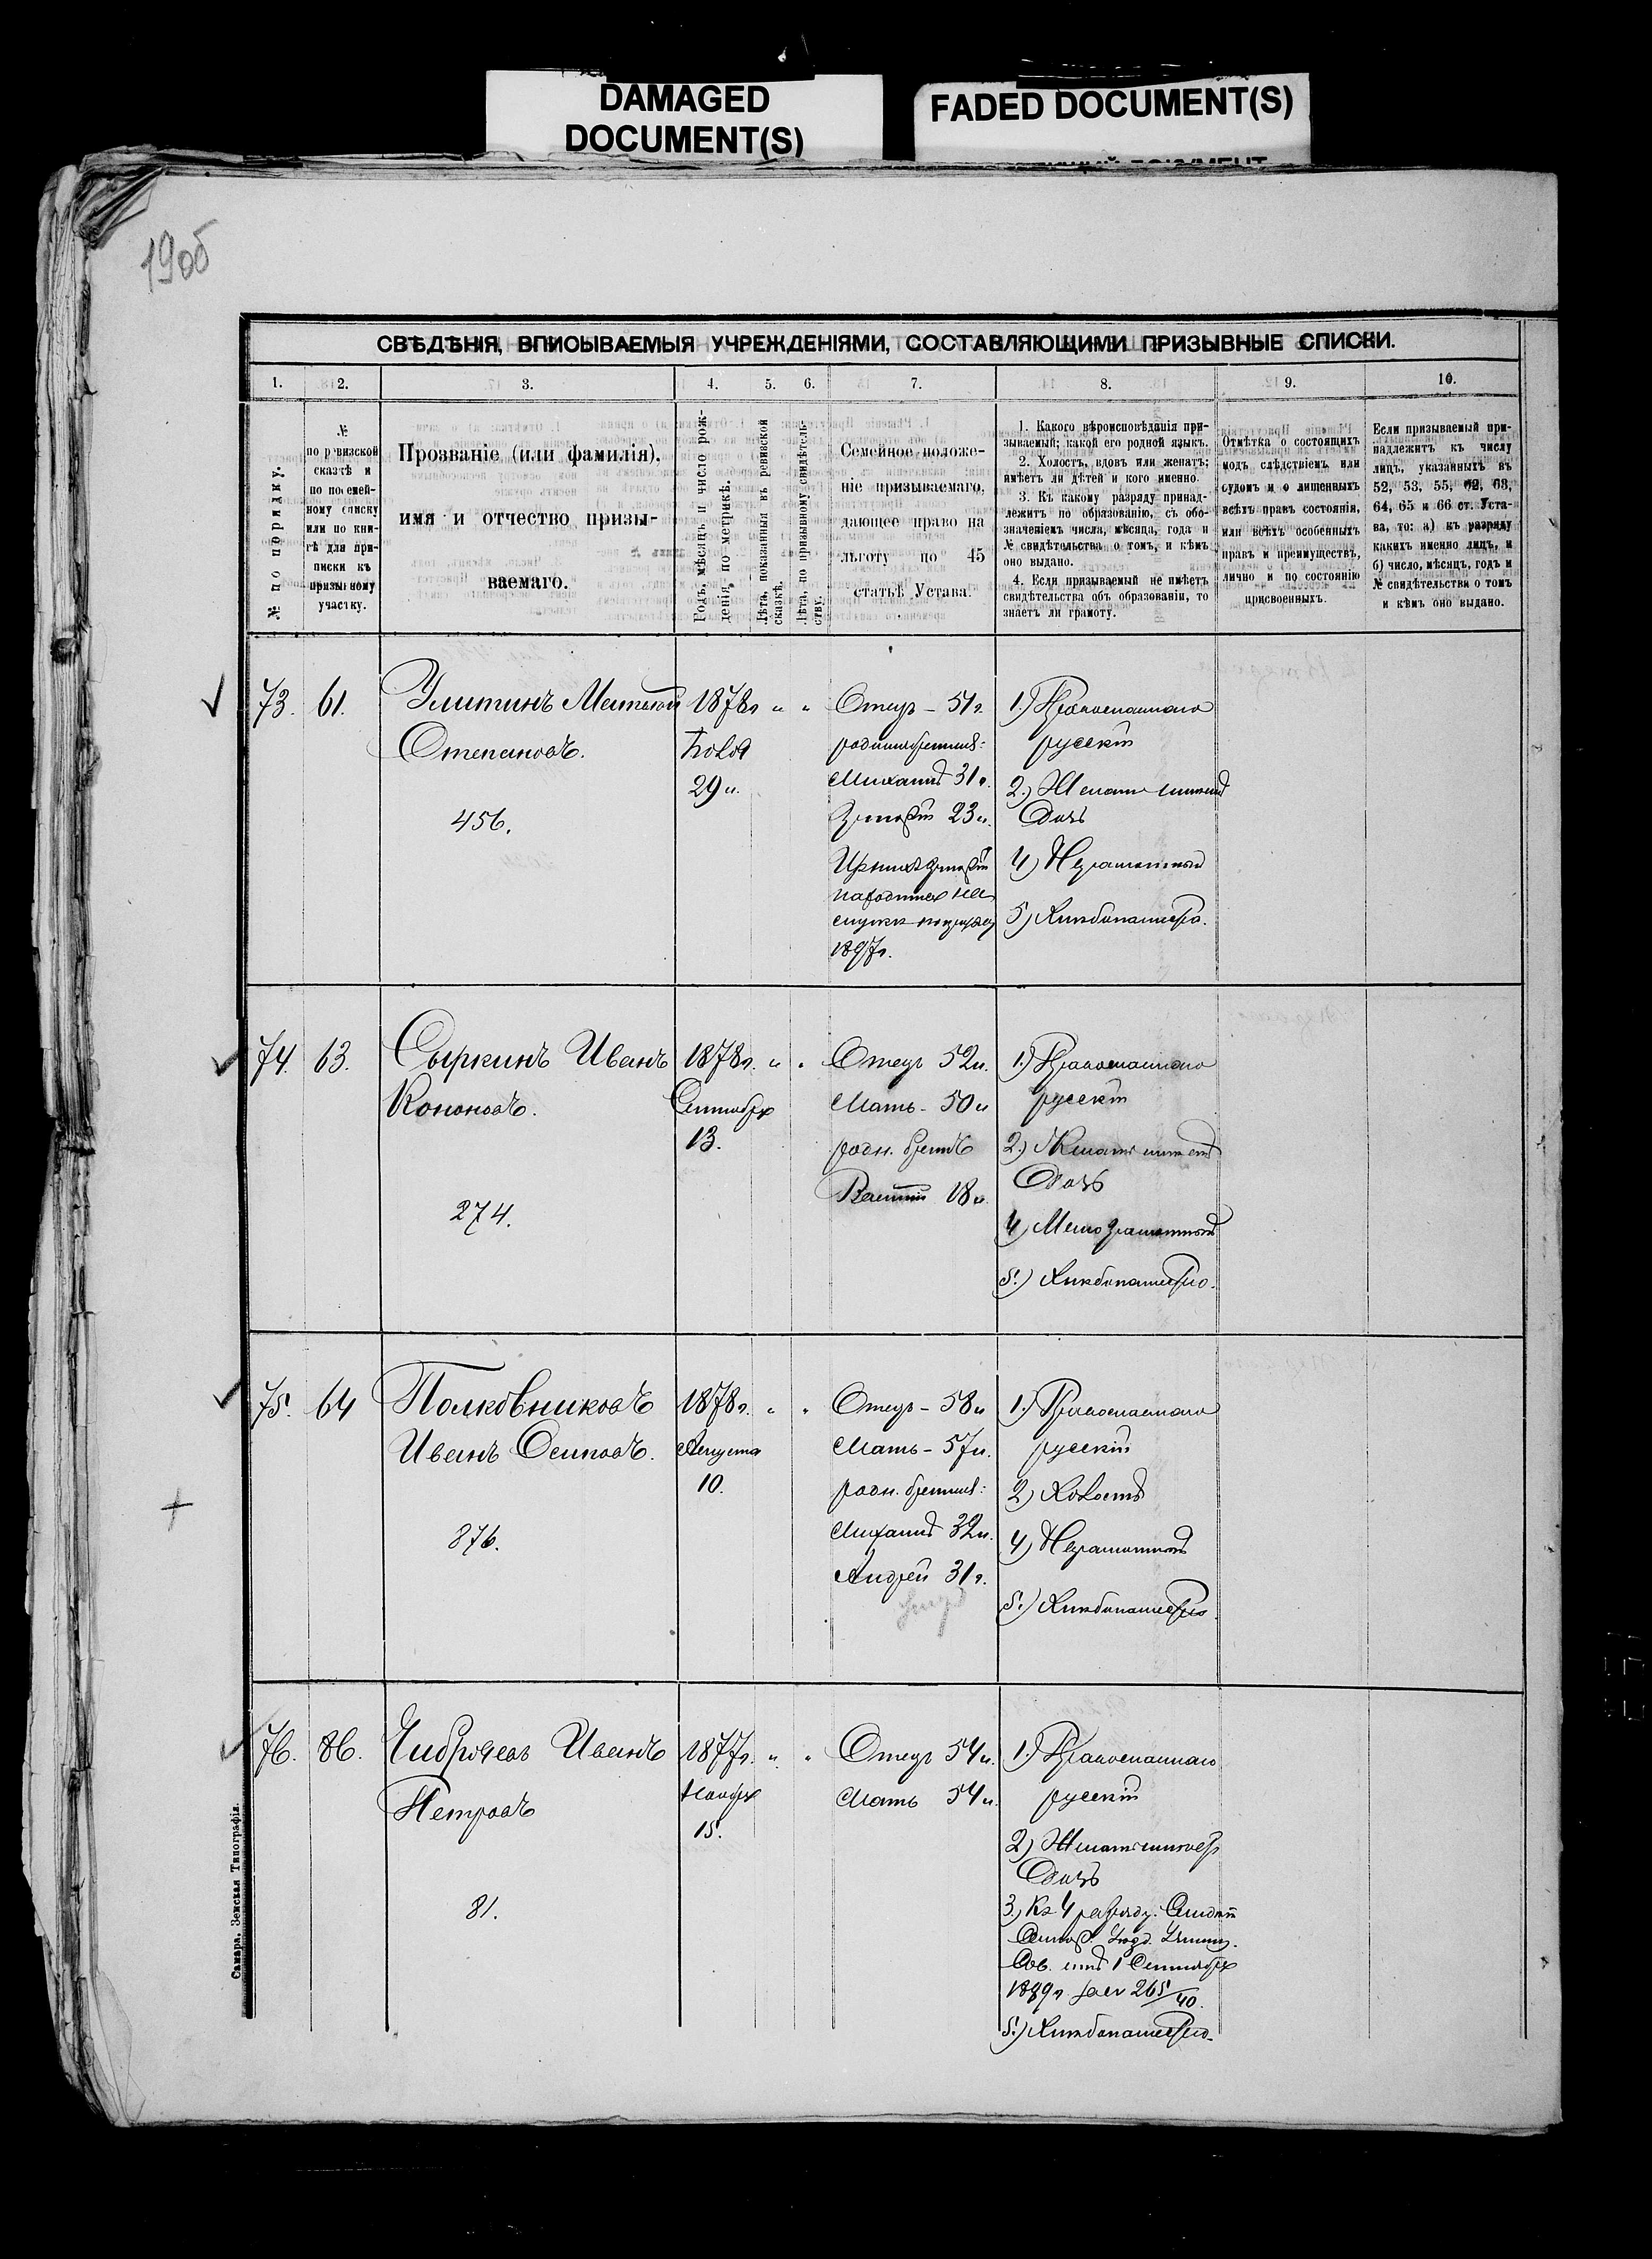 DAMAGED
DOCUMENT(S)
FADED DOCUMENT(S)
190б
СВѢДѢНІЯ, ВПИСЫВАЕМЫЯ УЧРЕЖДЕНІЯМИ, СОСТАВЛЯЮЩИМИ ПРИЗЫВНЫЕ СПИСКИ.
1. 2. 3. 4. 5. 6. 7. 8. 9. 10.
№ по порядку.
№
по ревизской
сказтѣ и
по посемей-
ному списку
или по кни-
гѣ для при-
писки къ
призывному
участку.
Прозваніе (или фамилія),
имя и отчество призы-
ваемаго.
Годъ, мѣсяцъ и число рож-
денія, по метрикѣ.
Лѣта, показанныя въ ревизской
сказкѣ.
Лѣта, по призывному свидѣтель-
ству.
Семейное положе-
ніе призываемаго,
дающее право на
льготу по 45
статьѣ Устава.
1. Какого вѣроисповѣданія при-
зываемый; какой его родной языкъ.
2. Холостъ, вдовъ или женатъ;
имѣетъ ли дѣтей и кого именно.
3. Къ какому разряду принад-
лежитъ по образованію, съ обо-
значеніемъ числа, мѣсяца, года и
№ свидѣтельства о томъ, и кѣмъ
оно выдано.
4. Если призываемый не имѣетъ
свидѣтельства объ образованіи, то
знаетъ ли грамоту.
Отмѣтка о состоящихъ
подъ слѣдствіемъ или
судомъ и о лишенныхъ
всѣхъ правъ состоянія,
или всѣхъ особенныхъ
правъ и преимуществъ,
лично и по состоянію
присвоенныхъ.
Если призываемый при-
надлежитъ къ числу
лицъ, указанныхъ въ
52, 53, 55, 62, 63,
64, 65 и 66 ст. Уста-
ва, то: а) къ разряду
какихъ именно лицъ, и
б) число, мѣсяцъ, годъ и
№ свидѣтельства о томъ
и кѣмъ оно выдано.
73. 61.
Улитинъ Матвѣй
Степановъ.
456.
1878г. " "
29 "
Отецъ - 51 г.
родные братья:
Михаилъ 31 г.
23 л.
1897 г.
1.) Православнаго
русскій
2.) Женатъ имѣетъ
дочь
4) Неграмотный
5) Хлѣбопашество.
74. 63.
Сыркинъ Иванъ
Кононовъ.
274.
1878г. " "
Сентября
13.
Отецъ 52 л.
Мать - 50 л
родн. братъ
Василій 18 л.
1.) Православнаго
русскій
2.) Женатъ имѣетъ
дочь
4) Малограмотный
5.) Хлѣбопашество.
75. 64
Полковниковъ
Иванъ Осиповъ.
876.
1878г. " "
Августа
10.
Отецъ - 58 л
Мать - 57 л.
родн. братья:
Михаилъ 32 л.
Андрей 31 г.
1.) Православнаго
русскій
2) Холостъ
4) Неграмотный
5.) Хлѣбопашество
76. 86.
Иванъ
Петровъ
81.
1877г. " "
Ноября
15.
Отецъ 54 л.
Мать 54 л.
1.) Православнаго
русскій
2) Женатъ имѣетъ
дочь
3.) Къ 4 разряду.
1 Сентября
1889 г. за № 265/40.
5.) Хлѣбопашество.
Самара, Земская Типографія.